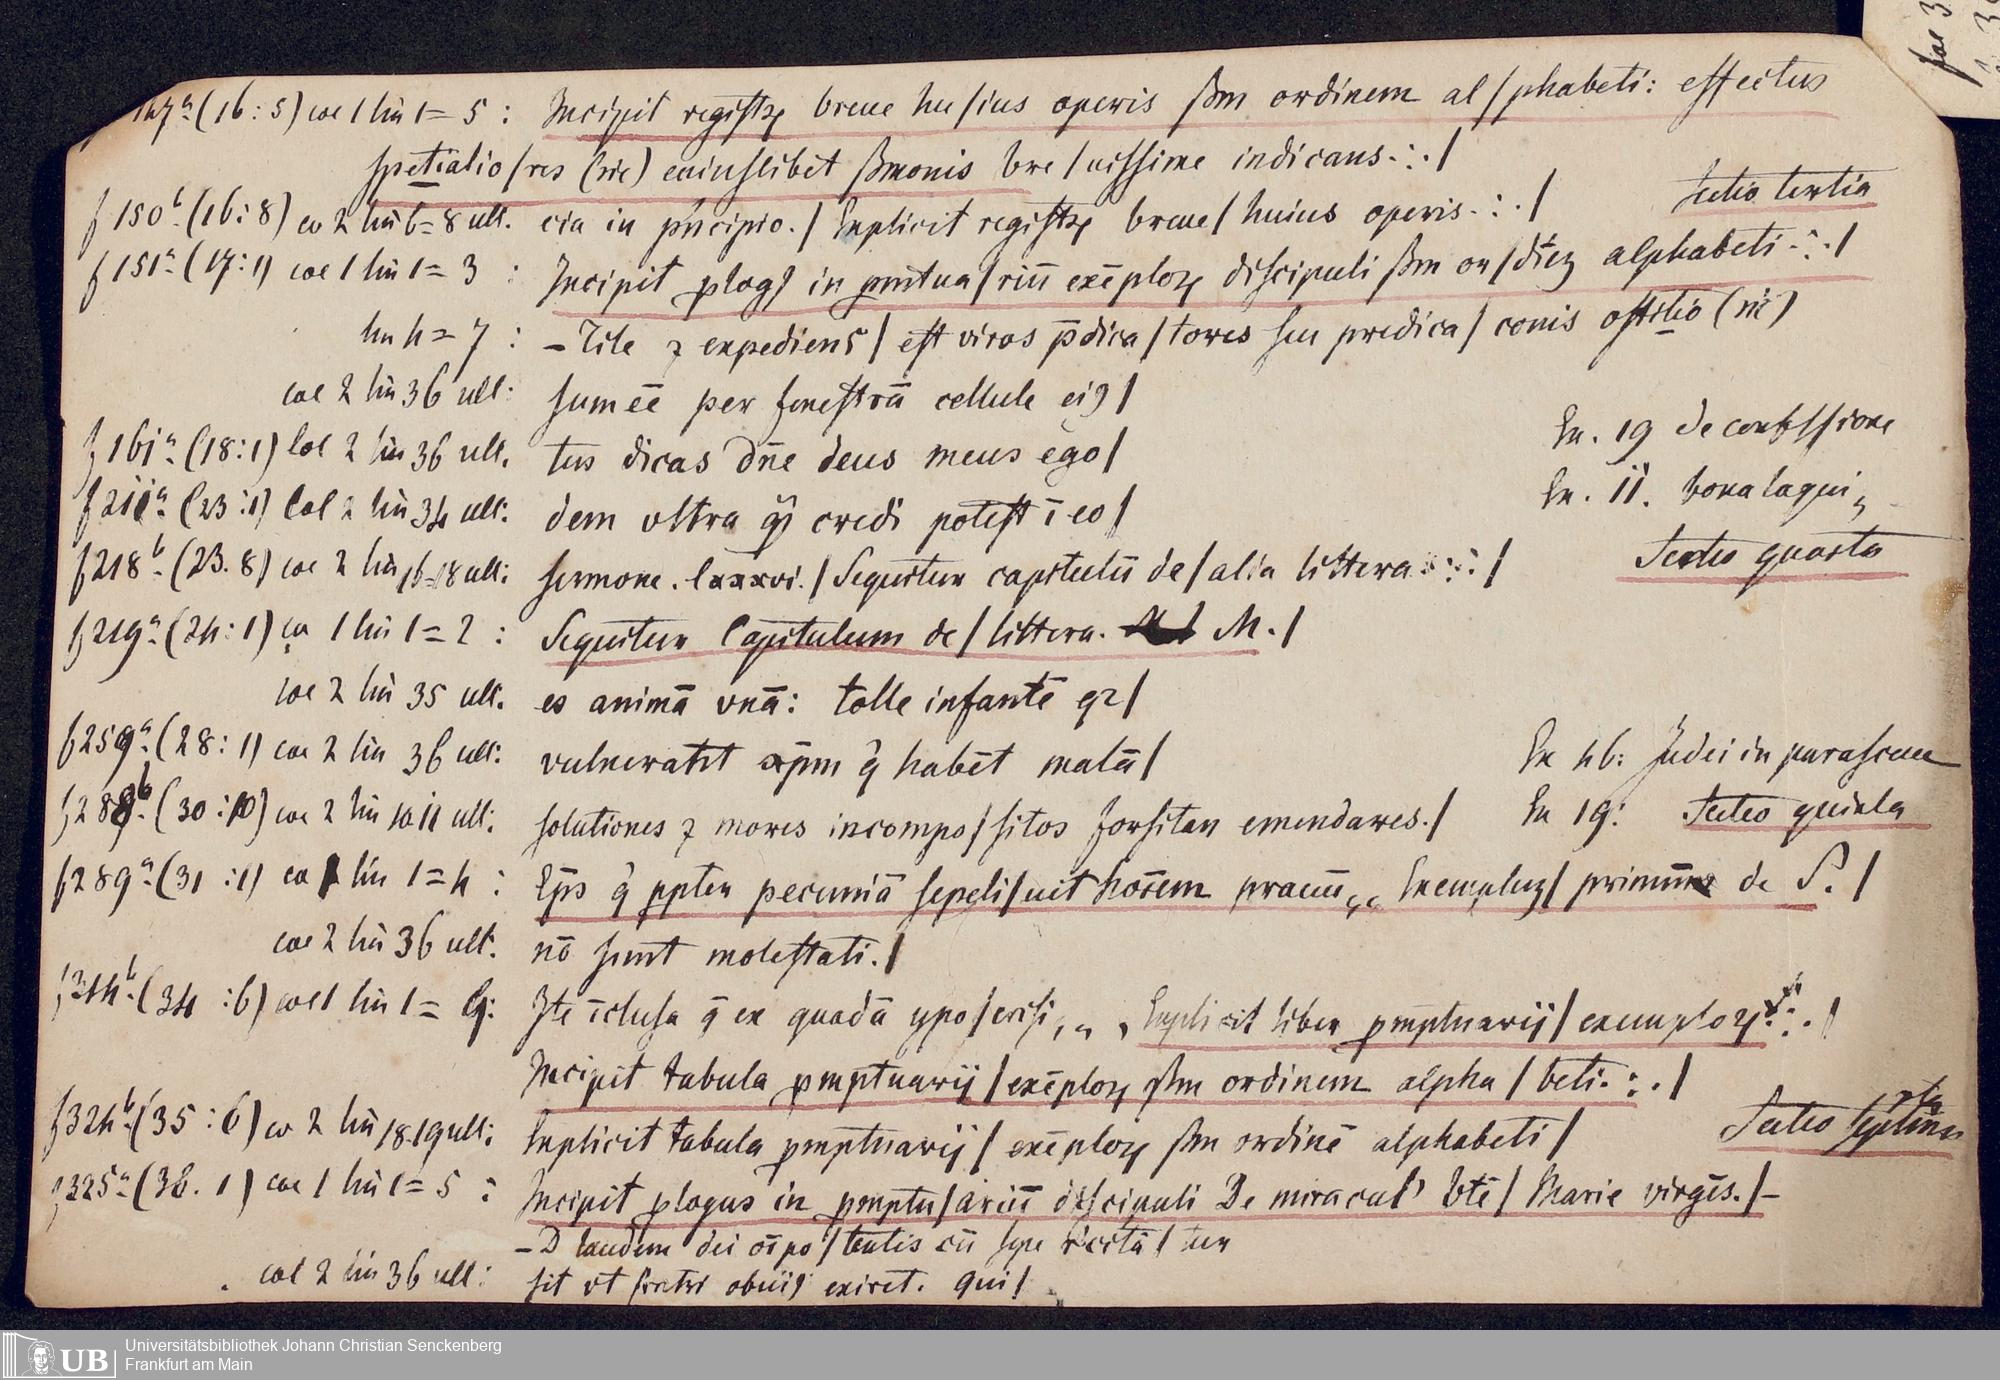 147ª (16:5) col 1 lin 1=5 : Incipit registrꝝ breue hu/ius operis ẞm ordinem al/phabeti: effectus
spetialio/res (sic) cuiuslibet ẞmonis bre/uissime indicans.:./
f 150ᵇ (16:8) co 2 lin 6=8 ult. cia in pͥncipio./ Explicit registrꝝ breue/ huius operis.:./ Sectio tertia
f 151ª (17:1) col 1 lin 1=3 : Incipit ꝓlog9 in ꝓmtua/riū exēploꝝ discipuli ẞm or/diēʒ alphabeti.:./
lin 4=7 : -Tile ⁊ expediens/ est viros p̄dica/tores seu predica/conis offitio (sic)
col 2 lin 36 ult: sum eē per fenestrā cellule ei9/
f 161ª (18:1) Col 2 lin 36 ult. tus dicas dn̄e deus meus ego/ Ex. 19 de confessione
f 211ª (23:1) Col 2 lin 34 ult: dem vltra qͣ credi potest ī eo/ Ex. 11. bona loqui
f 218ᵇ (23.8) col 2 lin 16=18 ult: sermone. lxxxvi./ Sequitur capitulū de/ alia littera.:.:/ Sectio quarta
f 219ª (24:1) co 1 lin 1=2 : Sequitur Capitulum de/ littera. M./
col 2 lin 35 ult. es animā vnā: tolle infantē qꝛ/
f 259ª (28:1) col 2 lin 36 ult: vulnerauit xp̄m qͥ habēt malā/ Ex 46: Judei in parasceue
f 288ᵇ (30:10) col 2 lin 10 11 ult: solutiones ⁊ mores incompo/sitos forsitan emendares./ Ex 19: Sectio quinta
f 289ª (31:1) co 1 lin 1=4 : Ep̄s qͥ ꝓpter pecuniā sepeli/uit hoīem prauū,, Exempluʒ/ primum de S./
col 2 lin 36 ult. nō sunt molestati./
f 314ᵇ (34:6) col 1 lin 1= 9: Itē īclusa q̄ ex quadā ypo/crisi,,, Explicit liber ꝓmptuarij/ exemploꝝ.:./
Incipit tabula ꝓmptuarij/ exēploꝝ ẞm ordinem alpha/beti.:./
f 324ᵇ (35:6) co 2 lin 18.19 ult: Explicit tabula ꝓmptuarij/ exēploꝝ ẞm ordinē alphabeti/ Sectio septima
f 325ª (36.1) col 1 lin 1=5 : Incipit ꝓlogus in ꝓmptu/ariū discipuli De miracul' btē/ Marie virgis./-
-D laudem dei oīpo/tentis cū sepe recitā/tur
col 2 lin 36 ult: sit vt fratri obui9 exiret. qui/
Universitätsbibliothek Johann Christian Senckenberg
UB Frankfurt am Main